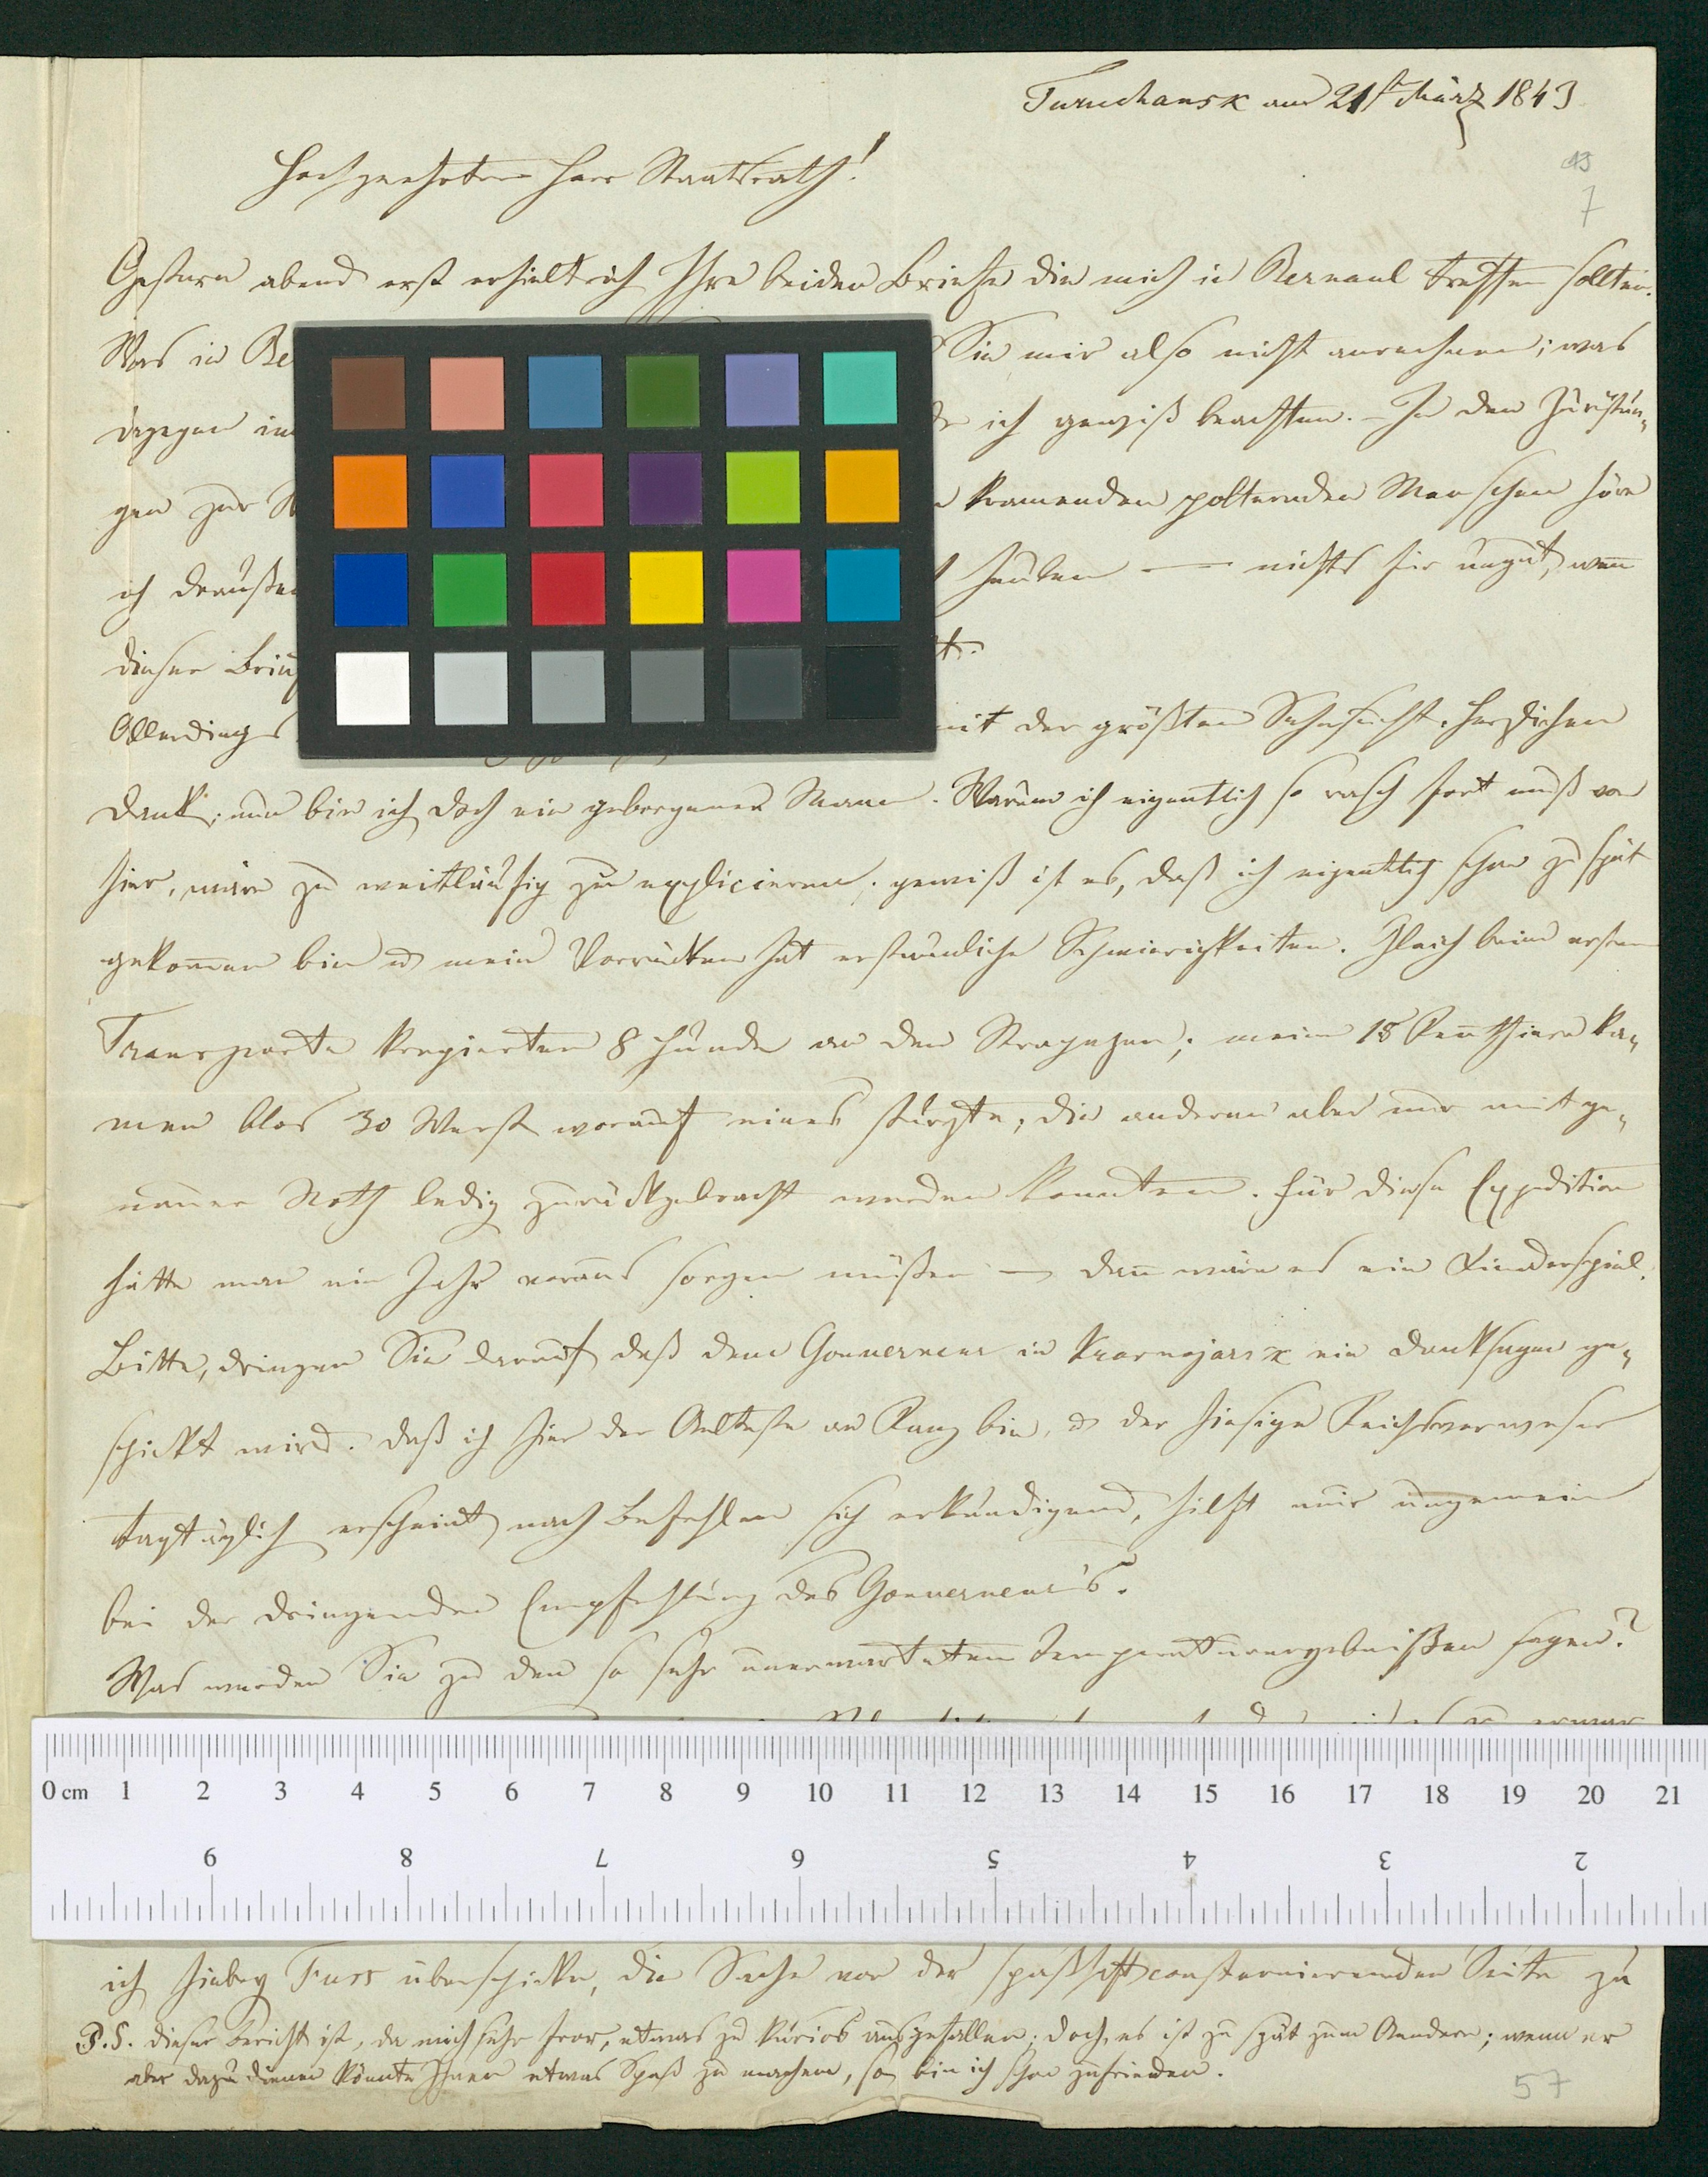 Turuchansk am 21st März 1843
13
7
Hochgeehrter Herr Staatsrath!
Gestern abend erst erhielt ich Ihre beiden Briefe die mich in Bernaul treffen sollten.
Was in Be Sie mir also nicht anrechnen; was
dagegen in ich gewiß beachten. – In den Zurüstun-
gen zur kramenden polternden Menschen höre
ich draußen heulen — nichts für ungut, wenn
dieser Brief
Allerdings mit der größten Sehnsucht. Herzlichen
Dank; nun bin ich doch ein geborgener Mann. Warum ich eigentlich so rasch fort muß von
hier, wäre zu weitläufig zu explicieren; gewiß ist es, daß ich eigentlich schon zu spät
gekommen bin u mein Vorrücken hat erstaunliche Schwierigkeiten. Gleich beim ersten
Transporte krepierten 8 Hunde an den Strapazen; meine 18 Rennthiere ka-
men blos 30 Werst worauf eines stürzte, die anderen aber nur mit ge-
nauer Noth ledig zurückgebracht werden konnten. Für diese Expedition
hätte man ein Jahr voraus sorgen müßen — dann wäre es ein Kinderspiel.
Bitte, dringen Sie darauf daß dem Gouverneur in Krasnojarsk ein Danksagen ge-
schickt wird. Daß ich hier der Aelteste an Rang bin, u der hiesige Reichsverweser
tagtäglich erscheint nach Befehlen sich erkundigend, hilft mir ungemein
bei der dringenden Empfehlung des Gouverneur's.
Was werden Sie zu den so sehr unerwarteten Temperaturergebnißen sagen?
0 cm 1 2 3 4 5 6 7 8 9 10 11 12 13 14 15 16 17 18 19 20 21
9 8 7 6 5 4 3 2
ich hiebey Fuss überschicke, die Sache von der spaßhaft consternierenden Seite zu
P.S. Dieser Bericht ist, da mich sehr fror, etwas zu kurios ausgefallen; doch es ist zu spät zum Aendern; wenn er
aber dazu dienen könnte Ihnen etwas Spaß zu machen, so bin ich schon zufrieden.
57